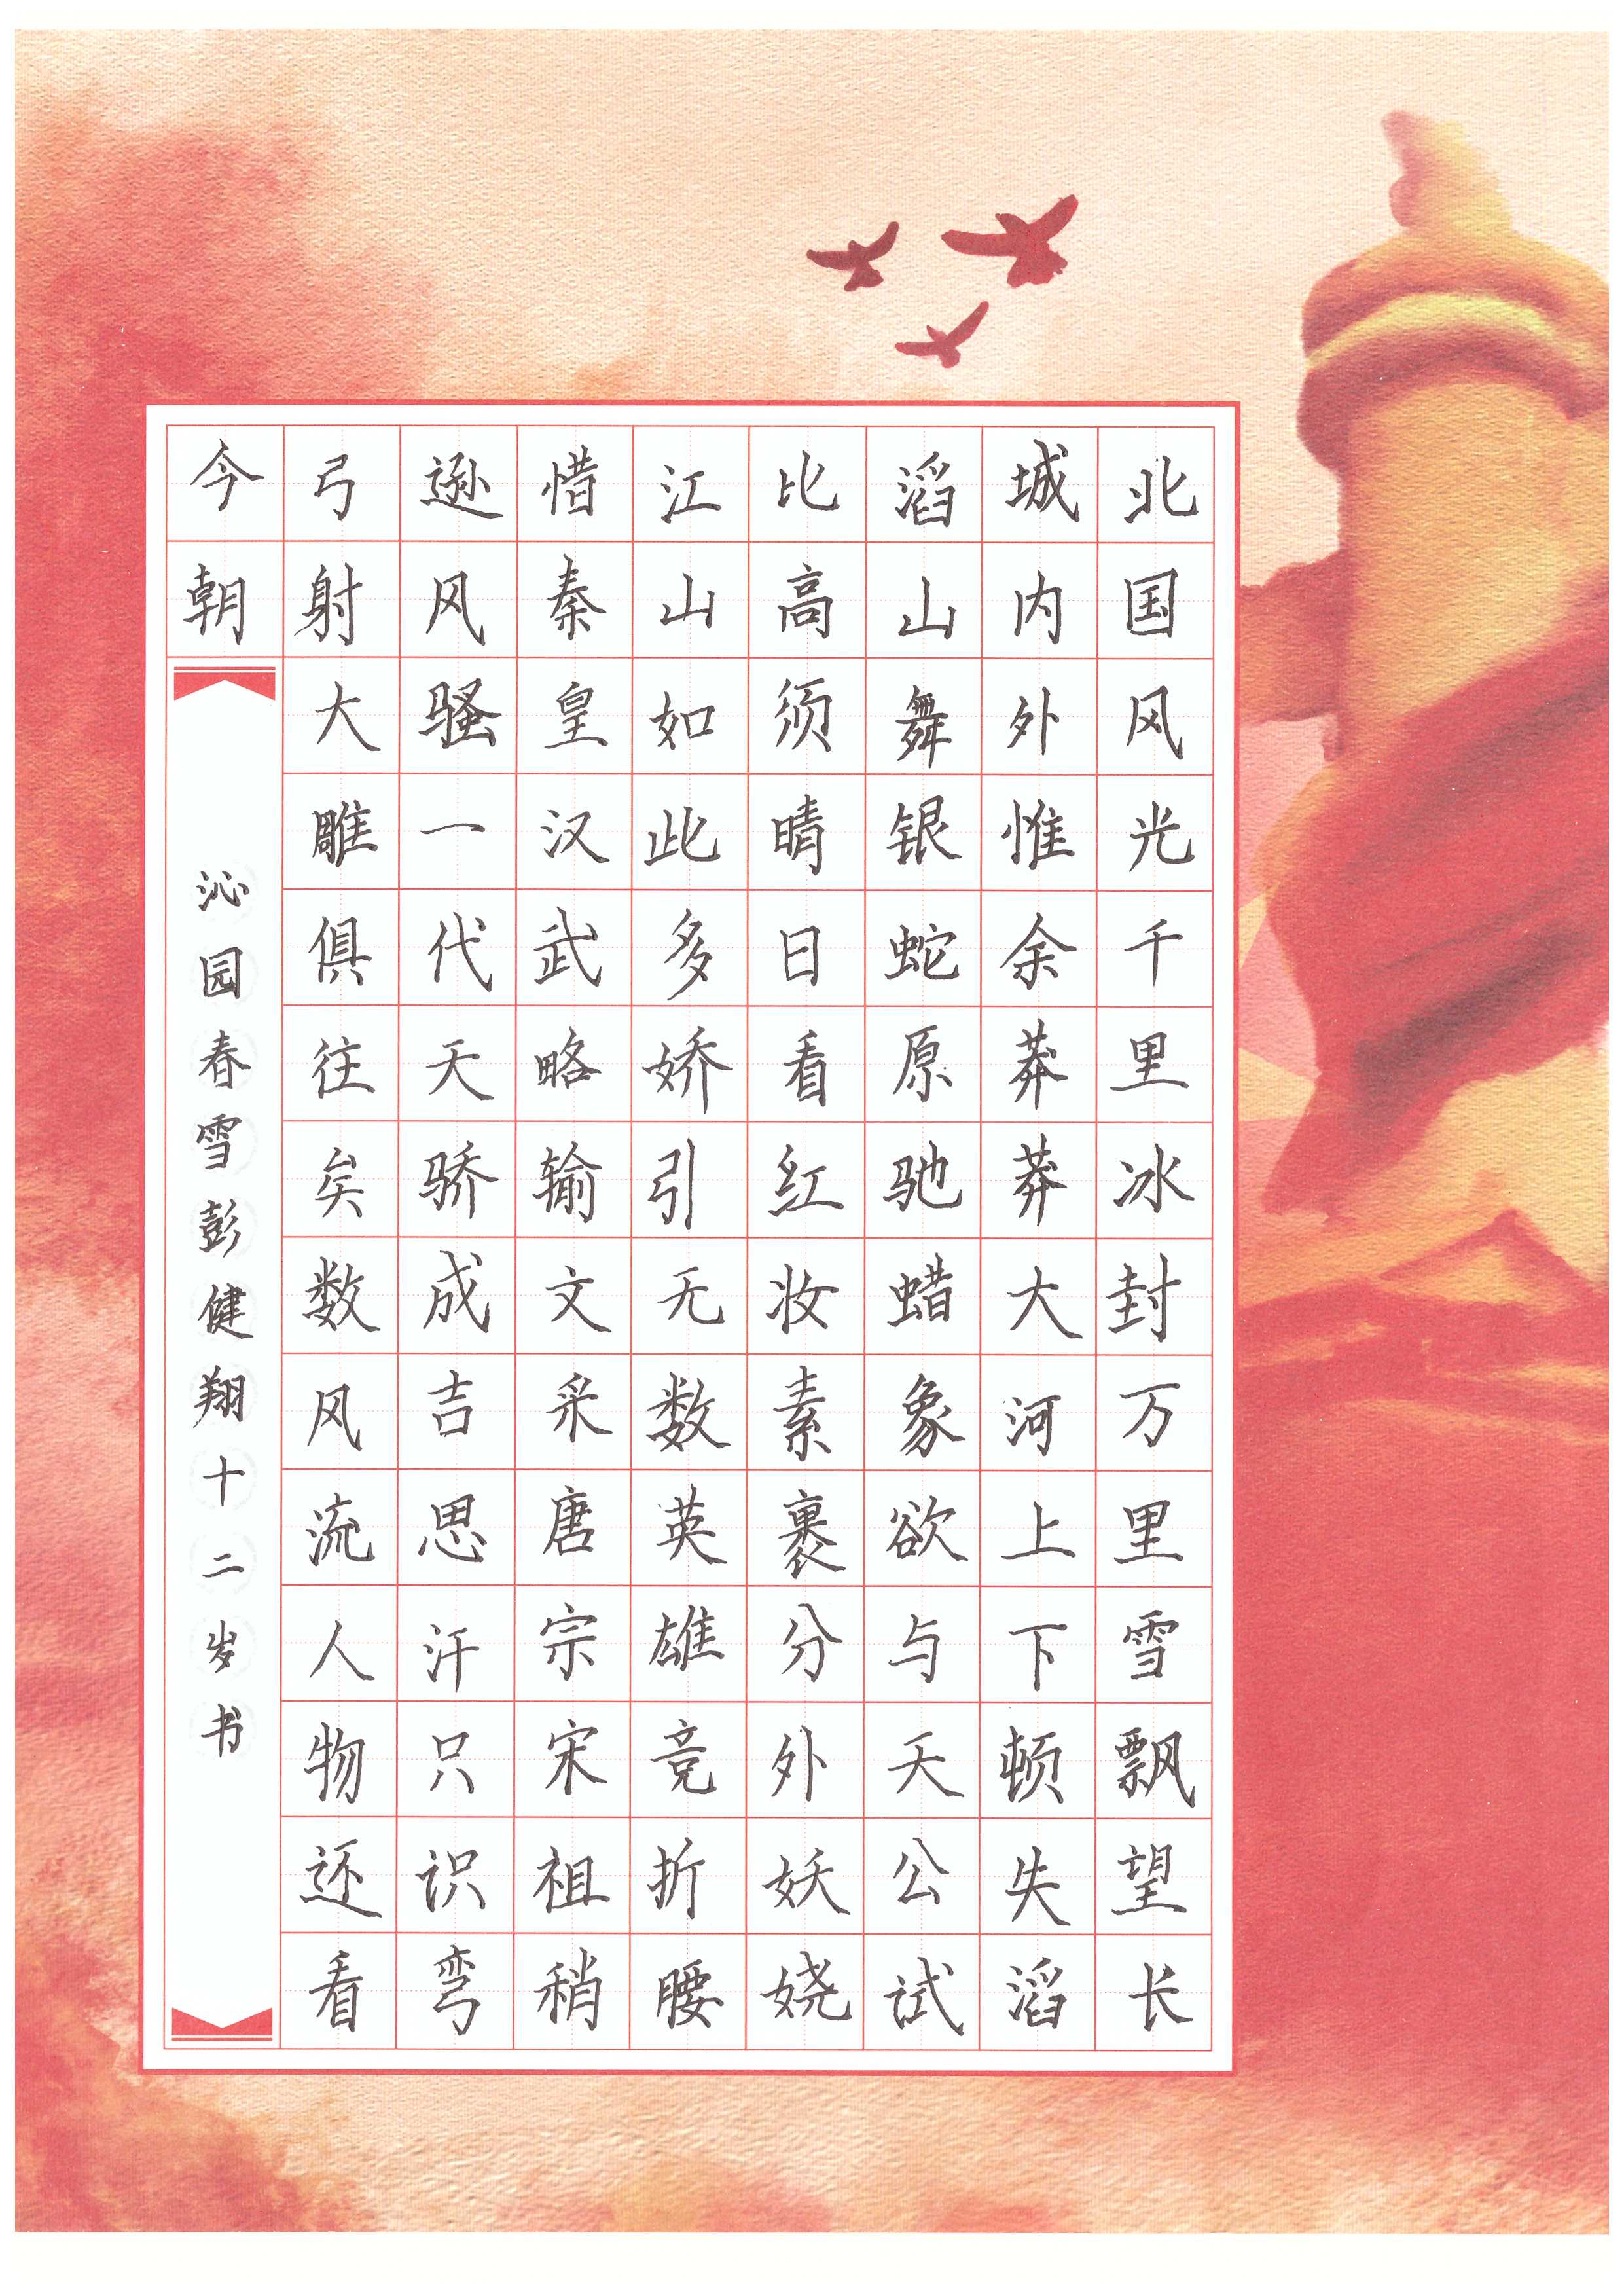 北国风光千里冰封万里雪飘望长
城内外惟余莽莽大河上下顿失滔
滔山舞银蛇原驰蜡象欲与天公试
比高须晴日看红妆素裹分外妖娆
江山如此多娇引无数英雄竞折腰
惜秦皇汉武略输文采唐宗宋祖稍
逊风骚一代天骄成吉思汗只识弯
弓射大雕俱往矣数风流人物还看
今朝
沁园春雪彭健翔十二岁书